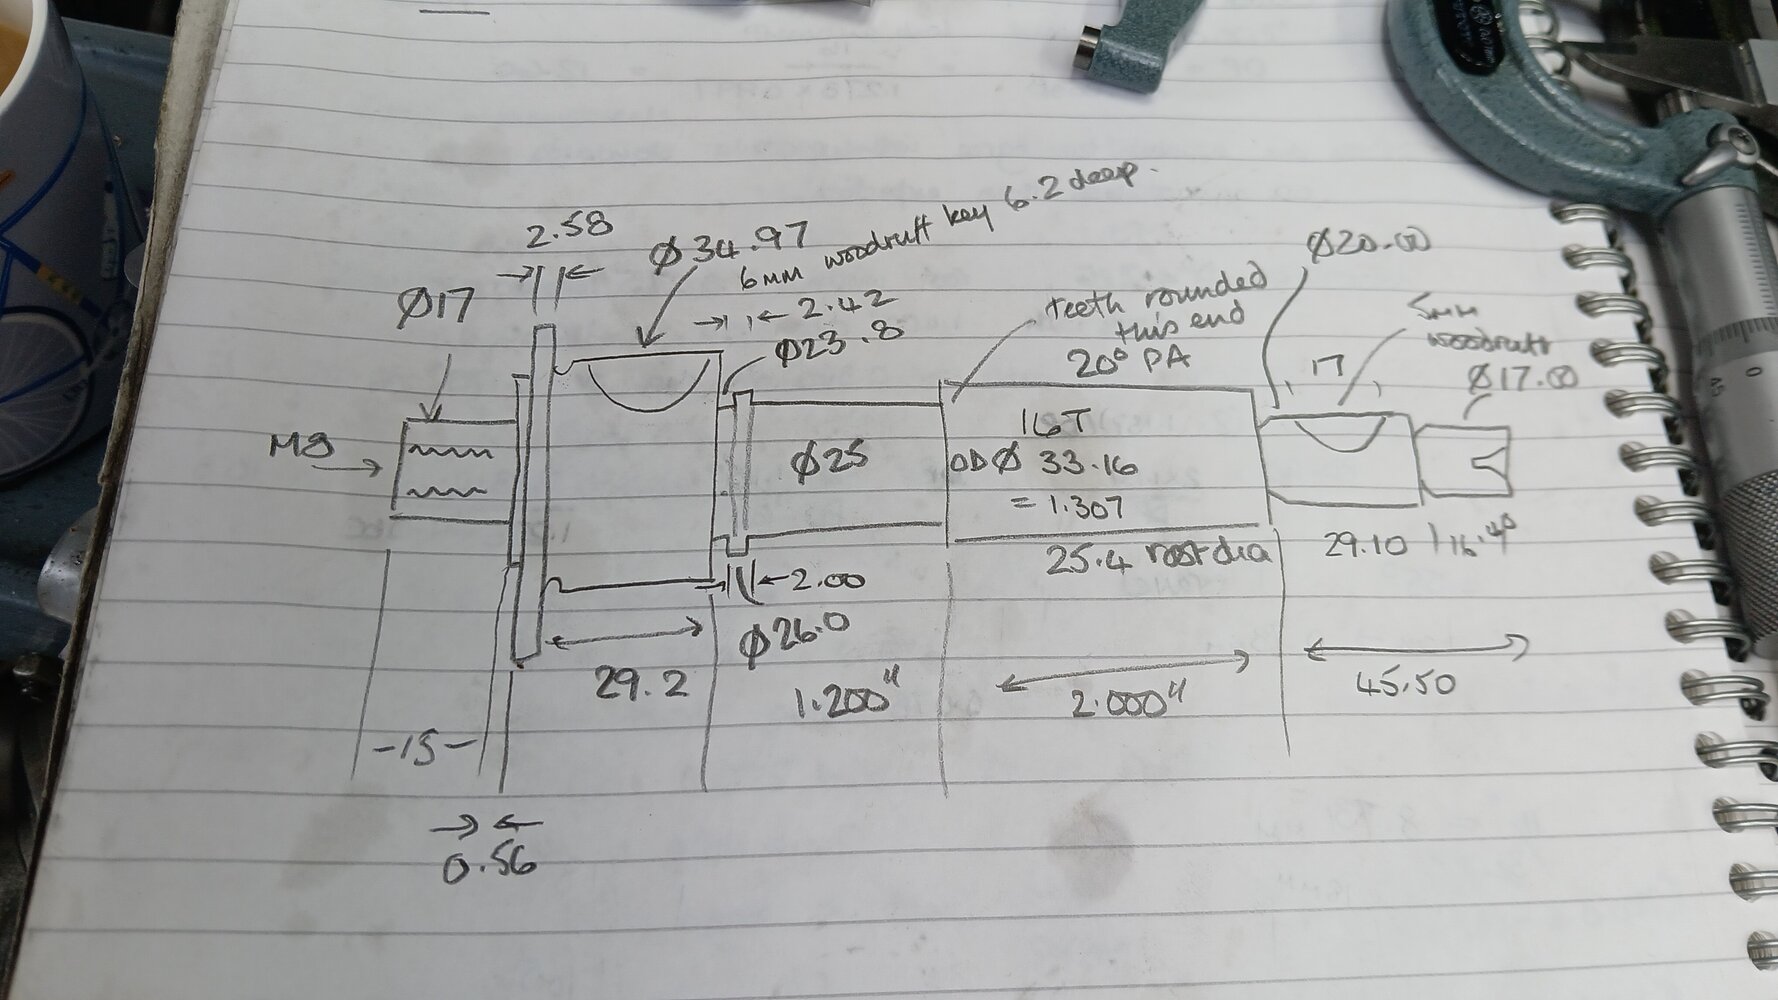 2.58
Ø 34.97
6MM woodruff key 6.2 deep.
Ø17
2.42
Ø23.8
Teeth rounded
this end
20° PA
Ø20.00
5mm
woodruff
17
Ø17.00
M8
Ø25
16T
OD Ø 33.16
= 1.307
25.4 root dia
29.10 / 16.40
2.00
Ø26.0
29.2
1.200"
2.000"
45.50
-15-
0.56